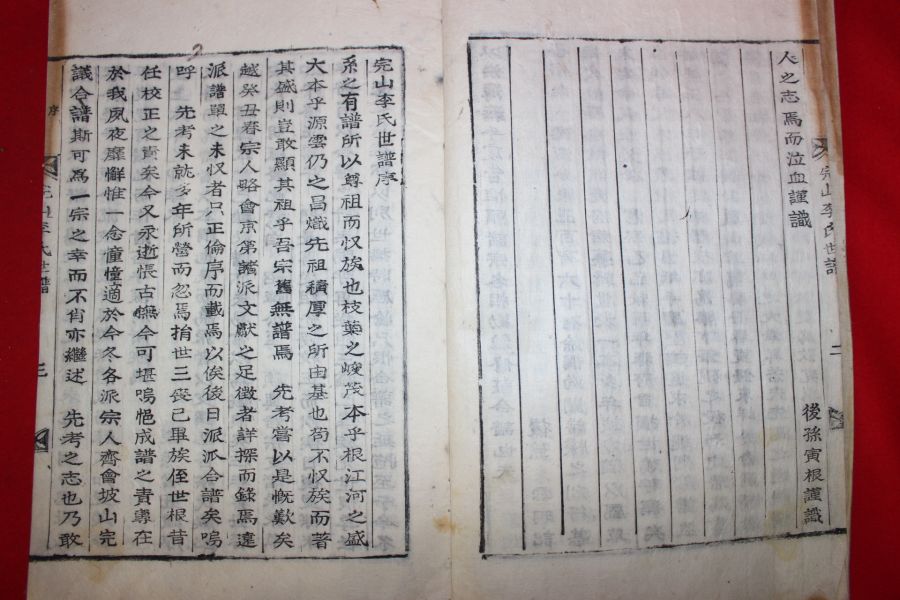 完山李氏世譜
二
後孫寅根謹識
人之志焉而泣血謹識
完山李氏世譜序
系之有譜所以尊祖而収族也枝葉之峻茂本乎根江河之盛
大本乎源雲仍之昌熾先祖積厚之所由基也苟不収族而著
其盛則豈敢顯其祖乎吾宗舊無譜焉 先考嘗以是慨歎矣
越癸丑春宗人略會京第諸派文獻之足徵者詳探而錄焉遠
派譜單之未収者只正倫序而載焉以俟後日派派合譜矣嗚
呼 先考未就多年所營而忽焉捐世三喪已畢族侄世根昔
任校正之責矣今又永逝悵古憮今可堪嗚悒成譜之責專在
於我夙夜靡懈惟一念憧憧適於今冬各派宗人齊會坡山完
議合譜斯可爲一宗之幸而不肖亦繼述 先考之志也乃敢
序
完山李氏世譜
三